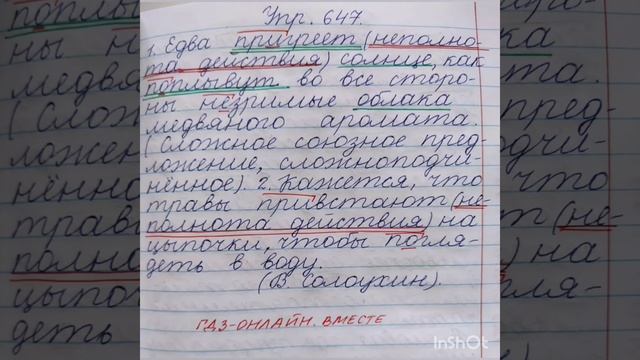 Упр. 647.
1. Едва пригреет (неполно-
та действия) солнце, как
поплывут во все сторо-
ны незримые облака
медвяного аромата.
(Сложное союзное пред-
ложение, сложноподчи-
нённое). 2. Кажется, что
травы привстают (не-
полнота действия) на
цыпочки, чтобы погля-
деть в воду.
(В. Солоухин).
ГДЗ-ОНЛАЙН. ВМЕСТЕ
InShOt